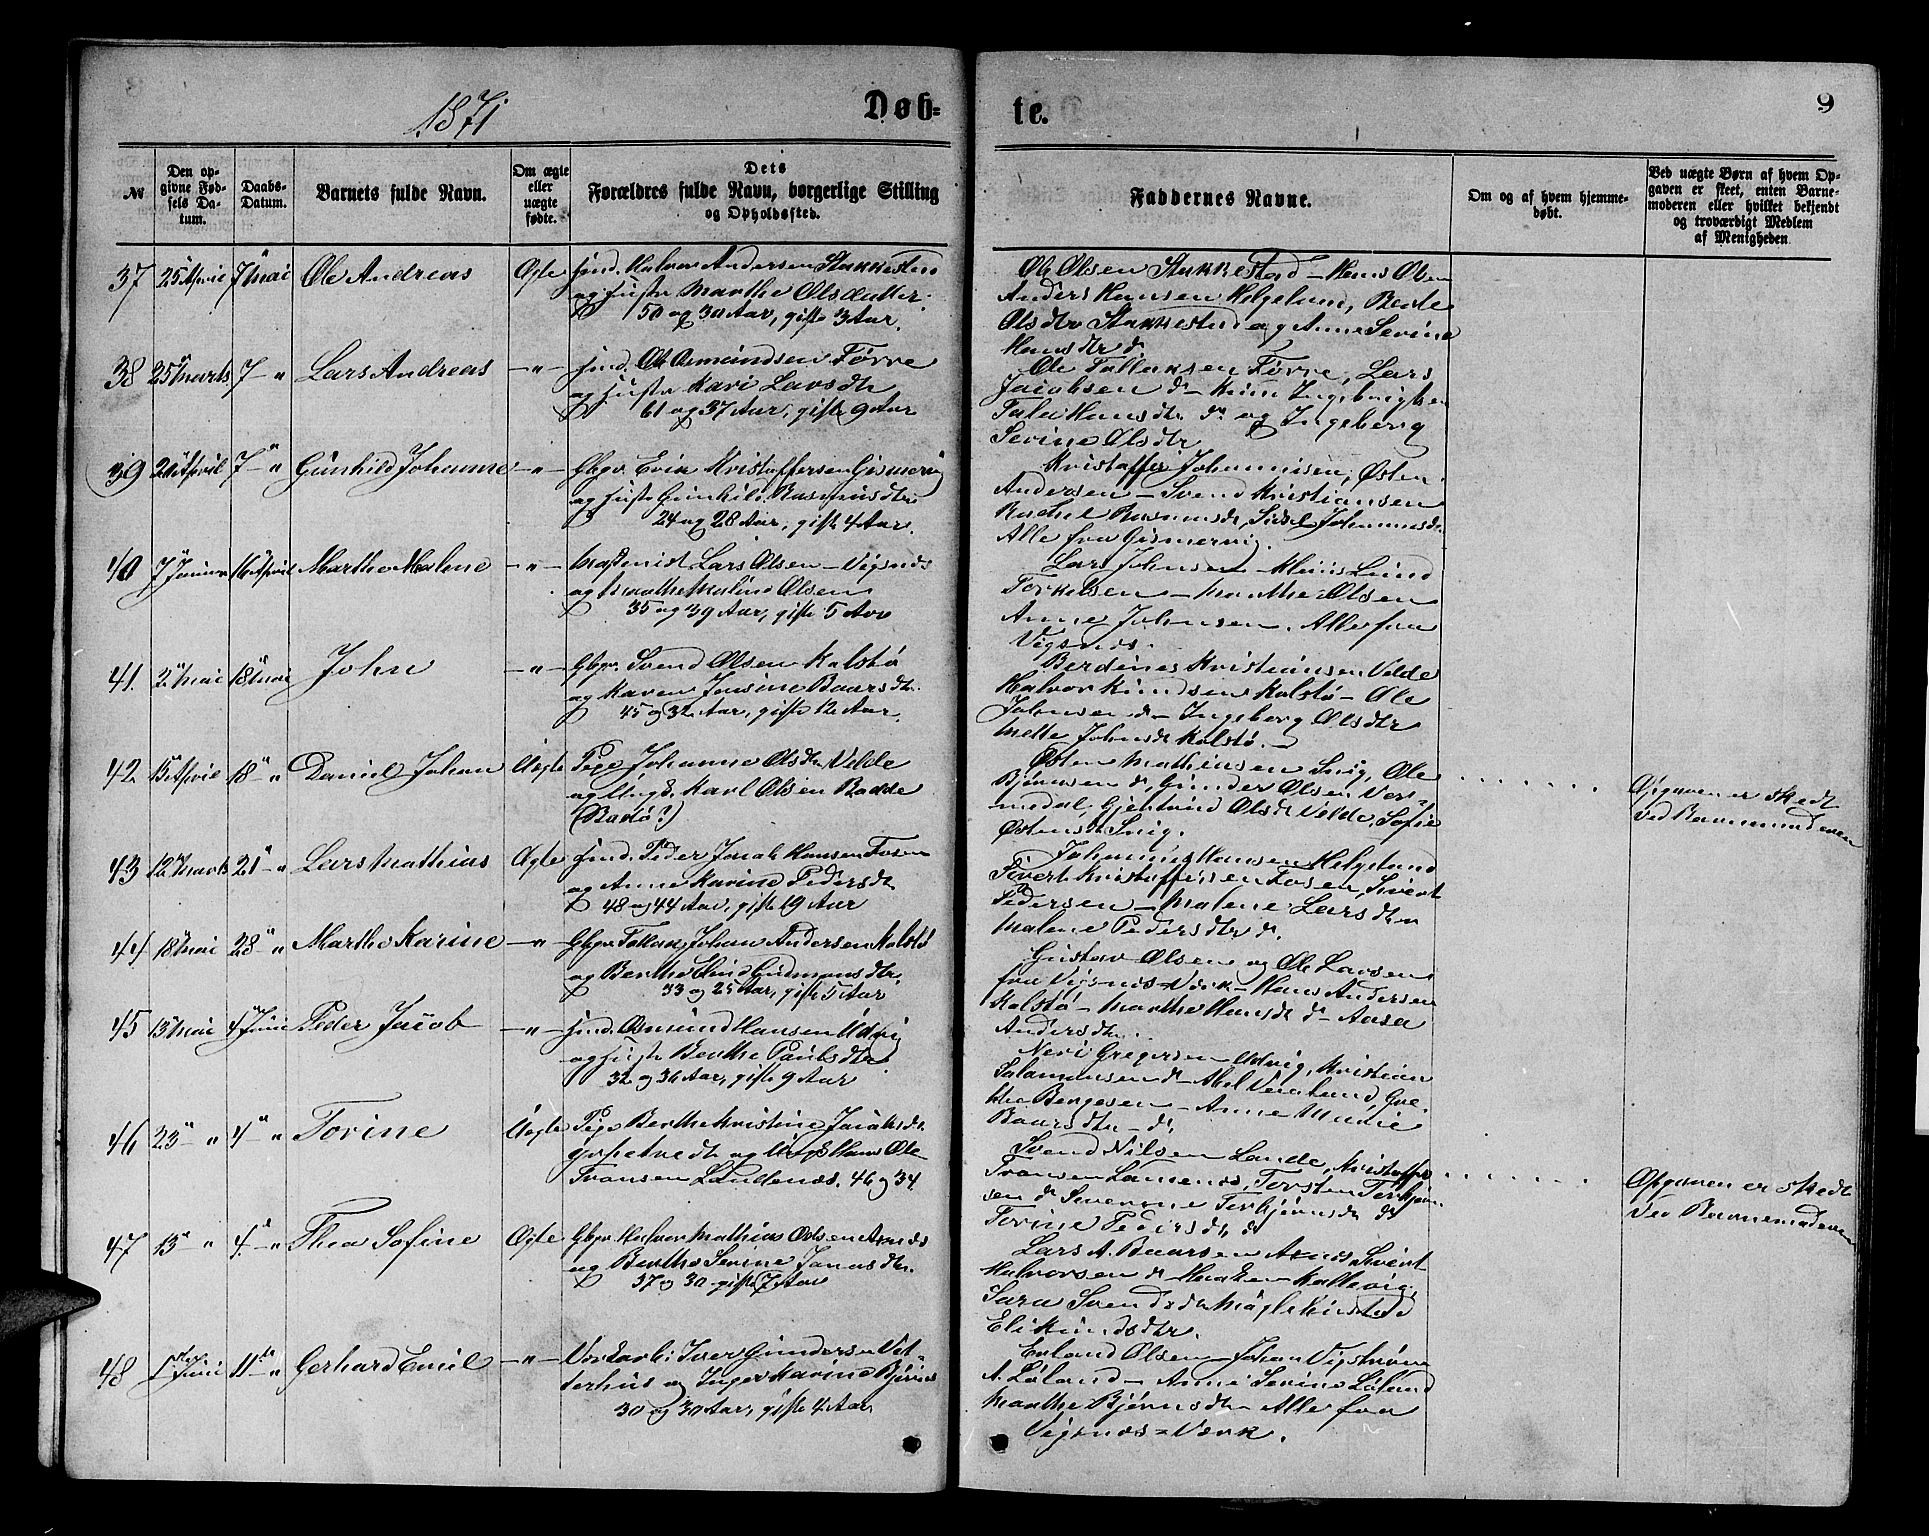 1871
Døb-
te.
9
№
Den op-
givne Fød-
sels Da-
tum.
Daabs-
Datum.
Barnets fulde Navn.
Om ægte
eller
uægte
fødte.
Dets
Forældres fulde Navn, borgerlige Stilling
og Opholdssted.
Faddernes Navne.
Om og af hvem hjemme-
døbt.
Ved uægte Børn af hvem Op-
gaven er skeet, enten Barne-
moderen eller hvilket bekjendt
og troværdigt Medlem
af Menigheden.
37 25 April 7 Mai Ole Andreas Ægte Halvor Andersen Stakkestad
og Hustr Marthe Olsdatter
50 og 30 Aar, gifte 3 Aar.
Ole Olsen Stakkestad – Hans Olsen
Anders Hansen Helgeland, Berte
Olsdtr Stakkestad og Anne Serine
Hansdtr d
38 25 Marts 7 – " Lars Andreas – " – Ole Osmundsen Førre
og Hustr Kari Larsdtr
61 og 37 Aar, gifte 9 Aar
Ole Tollaksen Førre, Lars
Jacobsen d – Knut Ingebrigtsen
Hansdtr d og Ingeborg
Serine Olsdtr
39 26 April 7 – " Gunhild Johanne – " – Gbgr. Erik Kristoffersen Gismervig
og Hustr Gunhild Rasmusdtr
24 og 28 Aar, gifte 4 Aar.
Kristoffer Johannisen, Østen
Andersen – Svend Kristiansen
Rachel Rasmusdtr, Sissel Johannesdtr
Alle fra Gismervig.
40 7 Januar 16 April Marthe Malene – " – Lars Olsen – Vigsnæs
og Marthe Maline Olsen
35 og 39 Aar, gifte 5 Aar
Lars Johnsen – Lund
Torkelsen – Marthe Olsen
Anne Johnsen. Alle fra
Vigsnæs.
41. 2 Mai 18 Mai John – " – Gbgr. Svend Olsen Kalstø
og Karen Jensine Baarsdtr.
45 og 32 Aar, gifte 12 Aar.
Berdines Kristiansen Velde
Halvor Knudsen Kalstø – Ole
Johnsen d – Ingeborg Olsdtr
Mette Johnsdtr Kalstø. –
42 15 April 18 – " Daniel Johan Uægte Pige Johanne Olsdtr Velde
og Ungk. Karl Olsen Radde
(Radø?)
Østen Mathiasen Snig, Ole
Bjørnsen d, Gunder Olsen Ves-
medal, Gjertrud Olsdtr Velde, Sofie
Østensdtr Snig.
Opgaven er skedt
Ved Barnemoderen
43 12 Marts 21 – " Lars Mathias Ægte Peder Jacob Hansen Fosen
og Anne Karine Pedersdtr
48 og 44 Aar, gifte 19 Aar
Johannes Hansen Helgeland
Sivert Kristoffersen Fosen, Sivert
Pedersen – Malene Larsdtr
Malene Pedersdtr d.
44 18 Mai 28 – " Marthe Karine – " – Gbgr Tollak Johan Andersen Kalstø
og Berthe Eline Gudmunsdtr
33 og 25 Aar, gifte 5 Aar
Gustav Olsen og Ole Larsen
fra Vigsnæs-Værk – Hans Andersen
Kalstø – Marthe Hansdtr d – Aasa
Andersdtr.
45 13 Mai 4 Juni Peder Jacob – " – Osmund Hansen Udvig
og Hustr Berthe Paulsdtr
32 og 36 Aar, gifte 9 Aar
Neri Gregersen Udvig, Kristian
Salamonsen d – Abel Vendland, Gre-
the Børgesen – Anne Marie
Baarsdtr – d.
46 23 – " 4 – " Torine Uægte Pige Berthe Kristine Jacobsdtr
og Ungk Hans Ole
Transen Landenæs. 46 og 34
Svend Nilsen Lande, Kristoffer
Transen Lannenæs, Torsten Torbjørn-
sen d Severine Torbjørnsdtr d
Torine Pedersdtr d
Opgaven er skedt
Ved Barnemoderen
47 13 – " 4. – " Thea Sofine Ægte Gbgr Halvor Mathias Olsen Axnæs
og Berthe Serine Jansdtr.
37 og 30 gifte 7 Aar
Lars A. Baarsen Axnæs Sivert
Halvorsen d – Haaken Kallevig,
Sara Svendsdtr
Eli Knudsdtr.
48 1ste Juni 11te – " Gerhard Emil – " – Iver Gundersen Vet-
terhus og Inger Karine Bjørns
30 og 30 Aar, gifte 4 Aar
Erland Olsen – Johan Vigstrøm
A Løland – Anne Serine Løland
Marthe Bjørnsdtr – Alle fra
Vigsnæs-Værk.